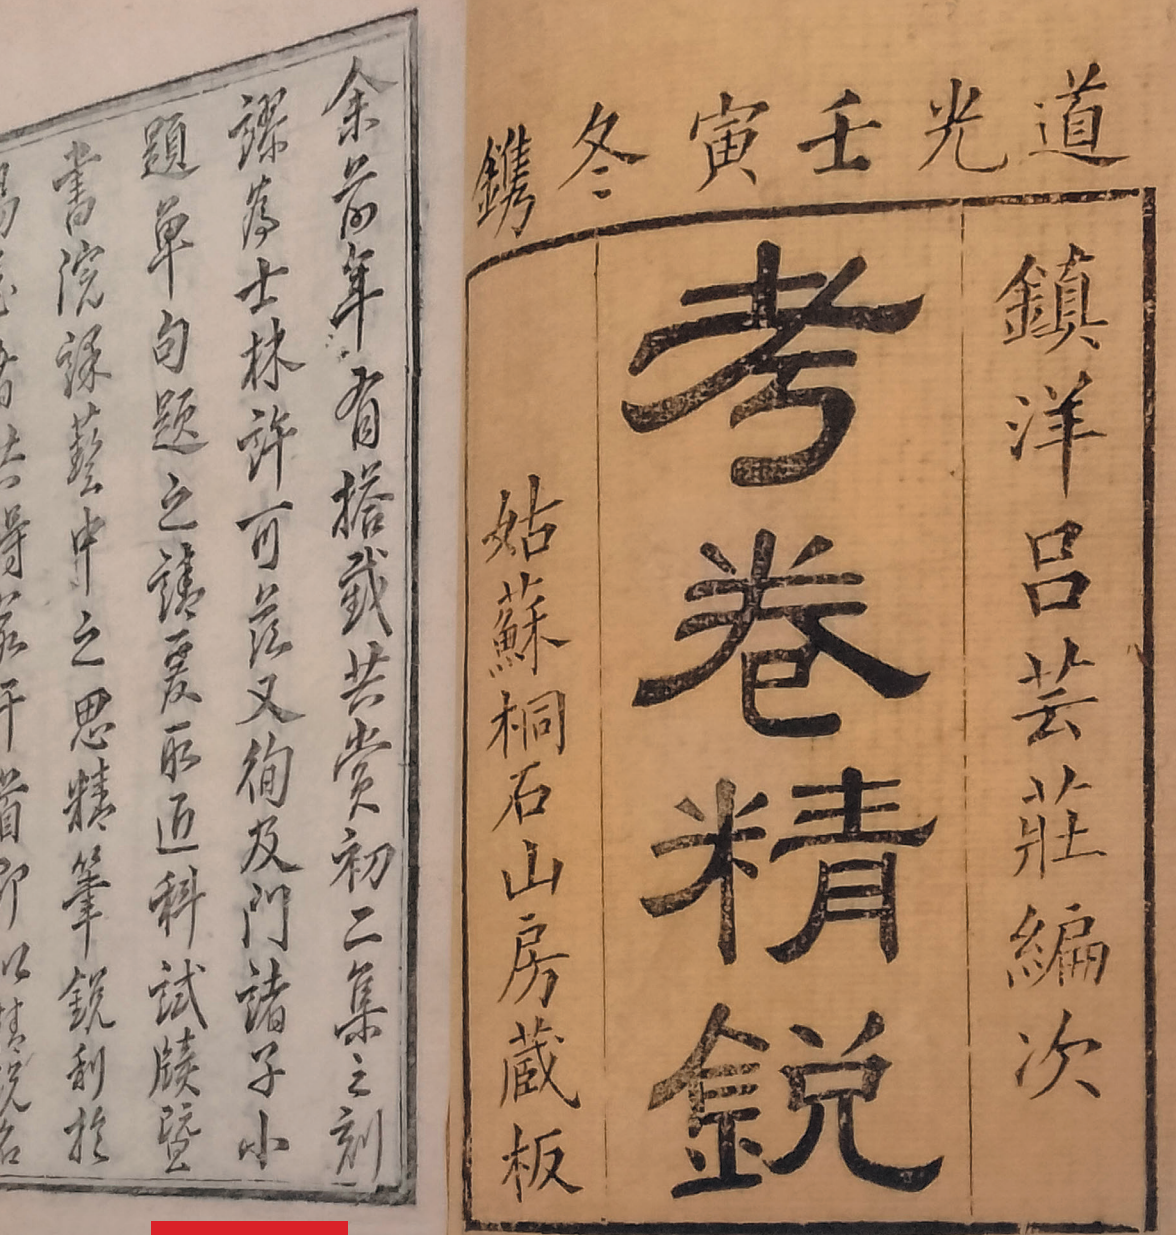 道光壬寅冬鐫
鎮洋呂芸莊編次
考卷精銳
姑蘇桐石山房藏板
余前年有搭截共賞初二集之刻
謬為士林許可茲又徇及門諸子小
題單句題之請爰取近科試牘暨
書院課藝中之思精筆銳利於